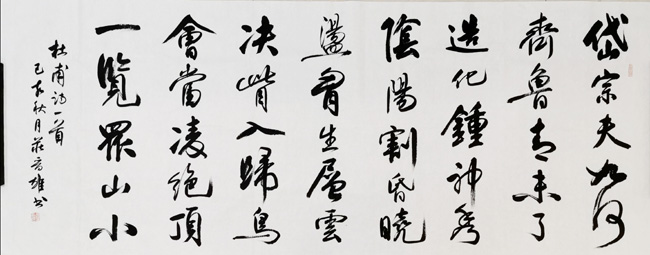 岱宗夫如何
齊魯青未了
造化鍾神秀
陰陽割昏曉
盪胷生層雲
决眥入歸鳥
會當凌絕頂
一覽眾山小
杜甫詩一首
己亥秋月莊雄书